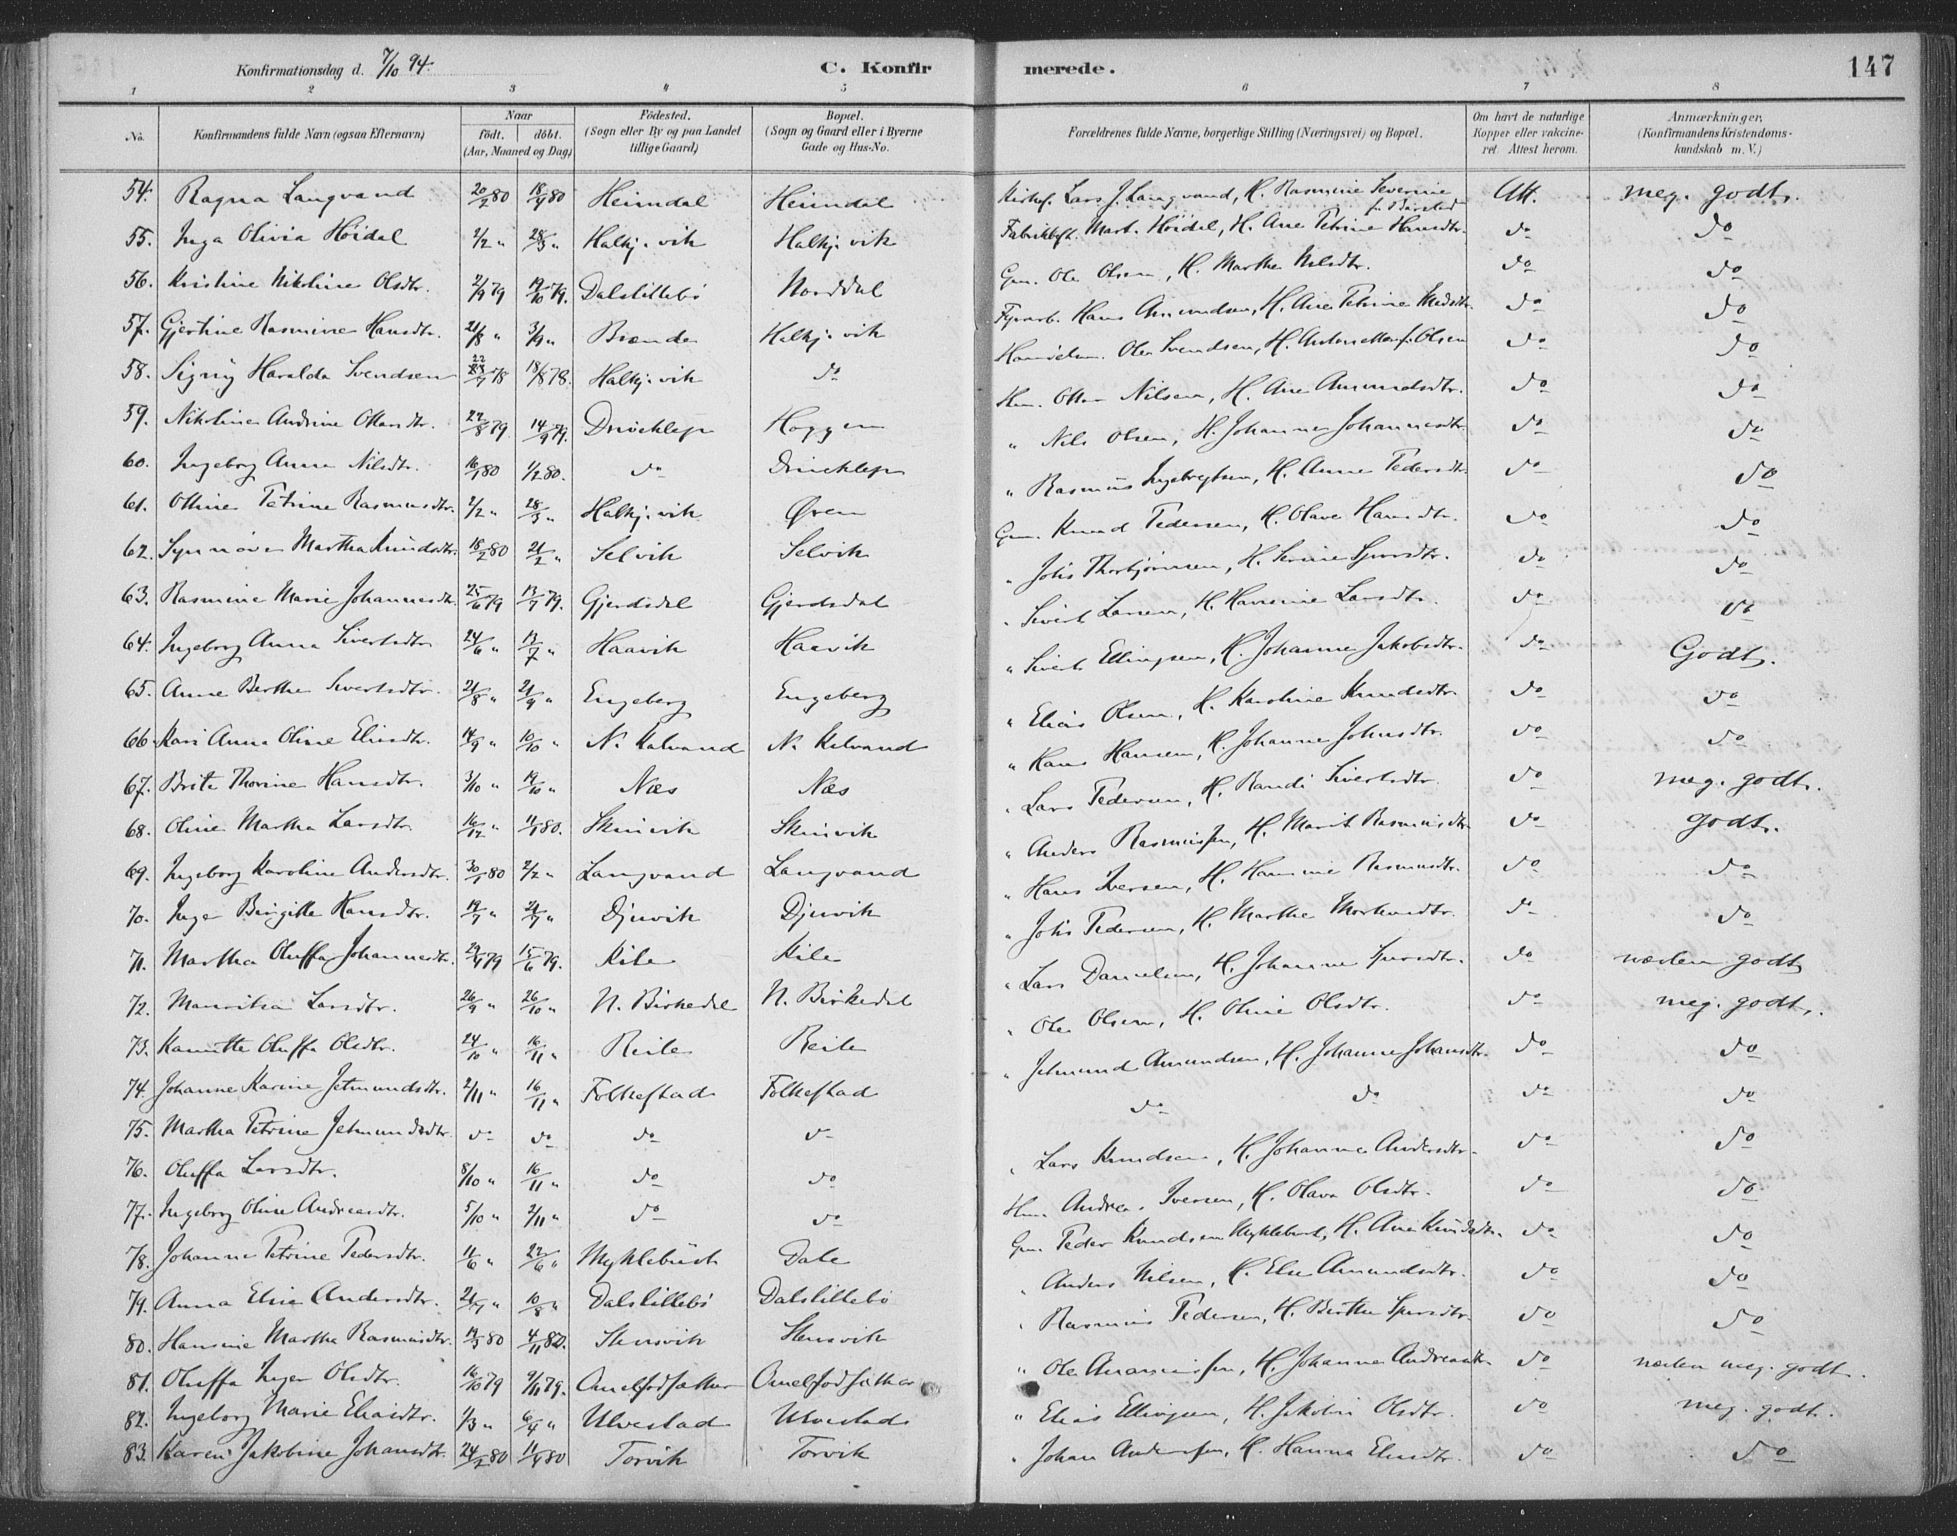 Konfirmationsdag d. 7/10 94. C. Konfirmerede. 147
1 2 3 4 5 6 7 8
No. Konfirmandens fulde Navn (ogsaa Efternavn) Naar födt. döbt. (Aar, Maaned og Dag) Födested. (Sogn eller By og paa Landet tillige Gaard) Bopæl. (Sogn og Gaard eller i Byerne Gade og Hus-No. Forældrenes fulde Navne, borgerlige Stilling (Næringsvei) og Bopæl. Om havt de naturlige Kopper eller vakcineret. Attest herom. Anmærkninger, (Konfirmandens Kristendomskundskab m. V.)
54. Ragna Langvand 20/2 80 18/4 80 Heimdal Heimdal Lars J. Langvand, H. Rasmine Severine Att. meg. godt.
55. Inga Olivia Höidal 2/2 " 28/3 " Halkjevik Halkjevik Mart. Höidal, H. Ane Petrine Hansdtr. do do
56. Kristine Nikoline Olsdtr. 2/9 79 19/10 79. Dalslillebö Norddal Gm. Ole Olsen, H. Marthe Nilsdtr. do do
57. Gjertine Rasmine Hansdtr. 21/8 " 3/9 " Brænde Halkjevik Hans Amundsen, H. Ane Petrine do do
58. Signy Haralda Svendsen 22/7 78 18/8 78. Halkjevik do Ole Svendsen, H. Olsen do do
59. Nikoline Andrine Ottarsdtr. 22/8 79 14/9 79. Hoggen Nilsen, H. Ane Amundsdtr. do do
60. Ingeborg Anna Nilsdtr. 16/1 80 1/2 80. do " Nils Olsen, H. Johanne Johannesdtr. do do
61. Petrine Rasmusdtr. 2/2 " 28/3 " Halkjevik Øren " Rasmus Ingebrigtsen, H. Anne Pedersdtr. do do
62. Synnöve Martha Knudsdtr. 18/2 80 21/2 " Selvik Selvik Gm. Knud Pedersen, H. Olave Hansdtr. do do
63. Rasmine Marie Johannesdtr. 25/6 79 13/7 79. Gjerdsdal Gjerdsdal " Johs Thorbjörnsen, H. Serine Sjursdtr. do do
64. Ingeborg Anna Sivertsdtr. 24/6 " 13/7 " Haavik Haavik " Sivert Larsen, H. Hansine Larsdtr. do do
65. Anne Berthe Sivertsdtr. 21/8 " 21/9 " Engeberg Engeberg " Sivert Ellingsen, H. Johanne Jakobsdtr. do Godt.
66. Kari Anna Oline Eliasdtr. 14/9 " 10/10 " N. Kalvand N. Kalvand " Elias Olsen, H. Karoline Knudsdtr. do do
67. Brite Thorine Hansdtr. 3/10 " 19/10 " Næs Næs " Hans Hansen, H. Johanne Johnsdtr. do do
68. Oline Martha Larsdtr. 16/12 " 11/1 80. Skinvik Skinvik " Lars Pedersen, H. Randi Sivertsdtr. do meg. godt.
69. Ingeborg Karoline Andersdtr. 30/1 80 2/2 " Langvand Langvand " Anders Rasmussen, H. Marit Rasmusdtr. do godt.
70. Inger Birgitte Hansdtr. 19/7 " 21/7 " Djuvik Djuvik " Hans Iversen, H. Hansine Rasmusdtr. do do
71. Martha Oluffa Johannesdtr. 29/4 79 15/6 79. Kile Kile " Johs Pedersen, H. Marthe do do
72. Mauritsa Larsdtr. 26/9 " 26/10 " N. Birkedal N. Birkedal " Lars Danielsen, H. Johanne Sjursdtr. do næsten godt
73. Kanutte Oluffa Olsdtr. 24/10 " 16/11 " Reite Reite " Ole Olsen, H. Oline Olsdtr. do meg. godt.
74. Johanne Karine Jetmundsdtr. 2/11 " 16/11 " Folkestad Folkestad " Jetmund Amundsen, H. Johanne Johansdtr. do do
75. Martha Petrine Jetmundsdtr. do do do do do do do do
76. Oluffa Larsdtr. 8/10 " 16/11 " do do " Lars Knudsen, H. Johanne Andersdtr. do do
77. Ingeborg Oline Andreasdtr. 5/10 " 2/11 " do do Hm. Andreas Iversen, H. Olava Olsdtr. do do
78. Johanne Petrine Pedersdtr. 11/6 " 22/6 " Myklebust Dale Gm. Peder Knudsen Myklebust, H. Ane Knudsdtr. do do
79. Anna Elise Andersdtr. 21/7 " 10/8 " Dalslillebö Dalslillebö " Anders Nilsen, H. Else Amundsdtr. do do
80. Hansine Martha Rasmusdtr. 19/3 80 4/11 80. Stensvik Stensvik " Rasmus Pedersen, H. Berthe Sjursdtr. do do
81. Oluffa Inger Olsdtr. 16/10 79 9/11 79. " Ole H. Johanne Andreasdtr. do næsten meg. godt.
82. Ingeborg Marie Eliasdtr. 1/3 " 6/4 " Ulvestad Ulvestad " Elias Ellingsen, H. Jakobine Olsdtr. do meg. godt.
83. Karen Jakobine Johansdtr. 24/2 80 11/4 80 Torvik Torvik " Johan Anderssen, H. Hanna Eliasdtr. do do